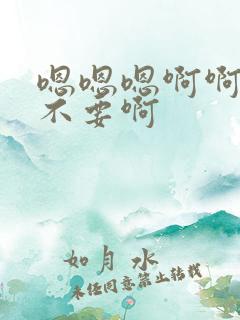 嗯嗯嗯啊啊
不要啊
如月水
未经同意禁止转载